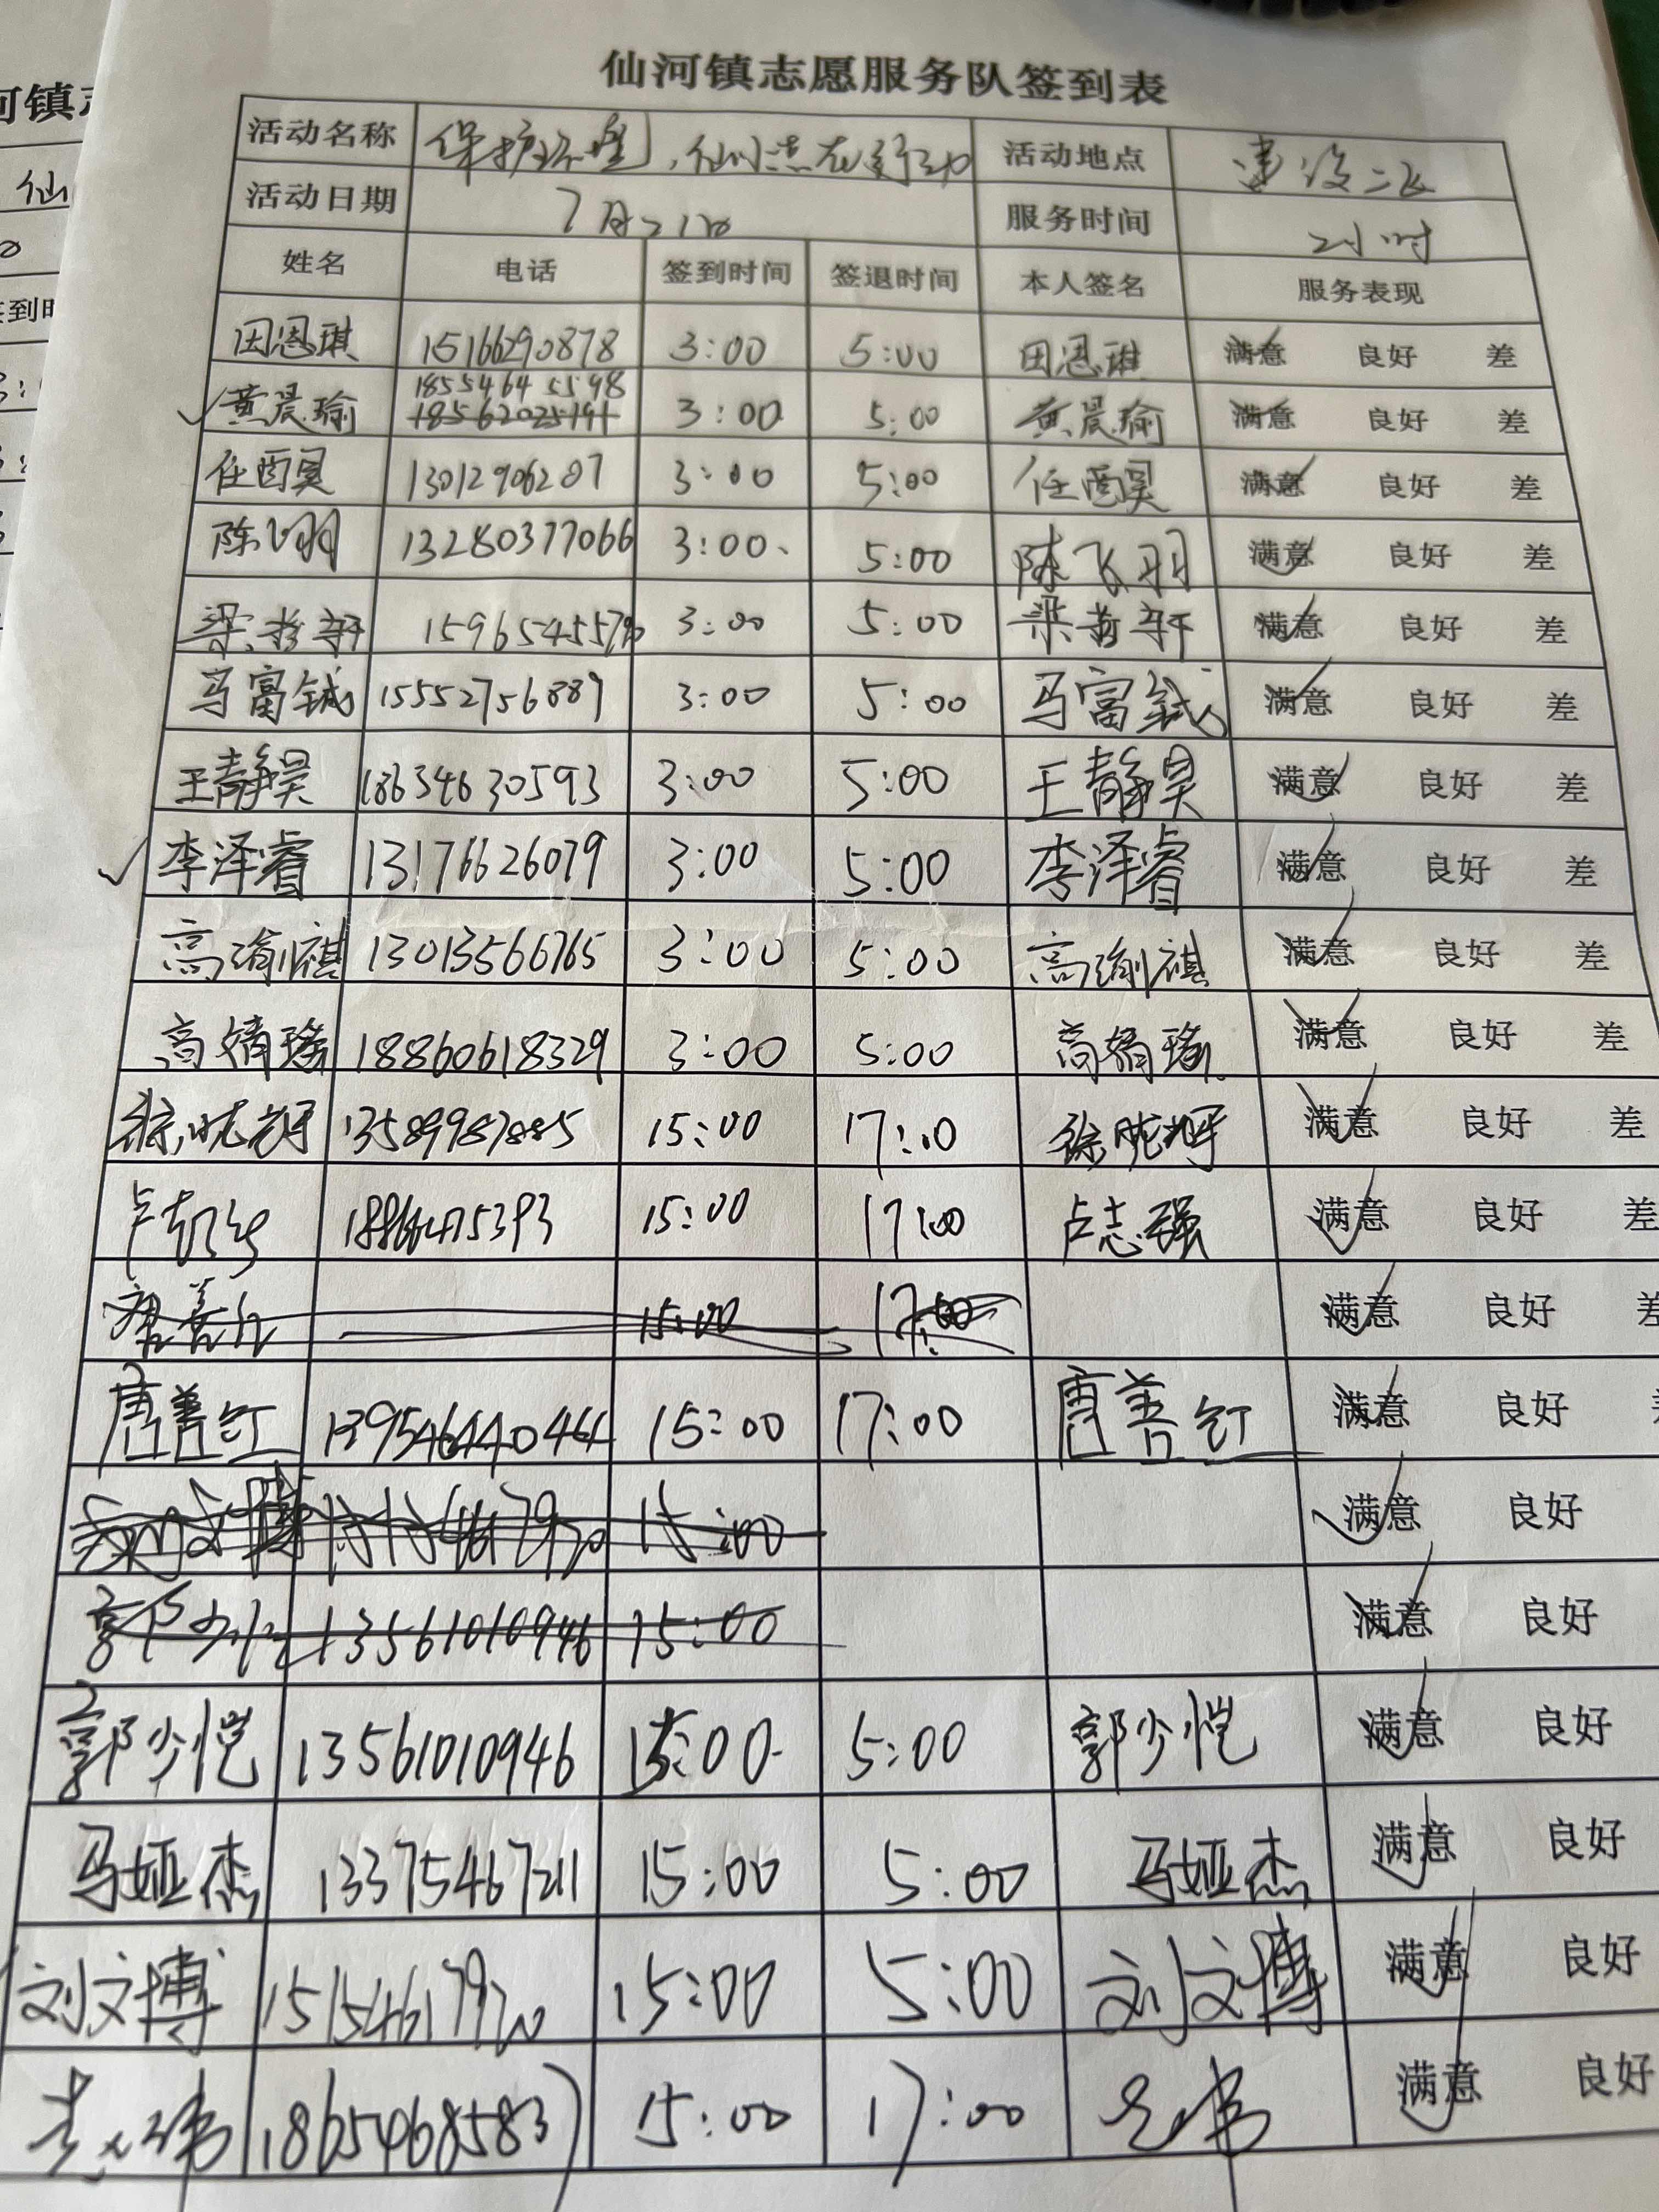 仙河镇志愿服务队签到表
活动名称 保护环境,仙河志在行动 活动地点 建设二区
活动日期 7月21日 服务时间 2小时
姓名 电话 签到时间 签退时间 本人签名 服务表现
田恩琪 15166290878 3:00 5:00 田恩琪 满意 良好 差
黄晨瑜 18554645598 3:00 5:00 黄晨瑜 满意 良好 差
18562025191
任酉昊 13012906207 3:00 5:00 任酉昊 满意 良好 差
陈飞羽 13280377066 3:00 5:00 陈飞羽 满意 良好 差
梁 轩 3:00 5:00 梁 轩 满意 良好 差
马富铖 15552756889 3:00 5:00 马富铖 满意 良好 差
王静昊 18634630593 3:00 5:00 王静昊 满意 良好 差
李泽睿 13176626079 3:00 5:00 李泽睿 满意 良好 差
高瑜祺 13013566765 3:00 5:00 高瑜祺 满意 良好 差
高婧瑶 18860618329 3:00 5:00 高婧瑶 满意 良好 差
徐晓 13589987885 15:00 17:10 徐晓 满意 良好 差
卢志强 18866475393 15:00 17:00 卢志强 满意 良好 差
唐善红 15:00 17:00 满意 良好 差
唐善红 15:00 17:00 唐善红 满意 良好
15:00 满意 良好
郭少 13561010946 15:00 满意 良好
郭少恺 13561010946 15:00 5:00 郭少恺 满意 良好
马娅杰 13375467211 15:00 5:00 马娅杰 满意 良好
刘文博 15154617920 15:00 5:00 刘文博 满意 良好
18654685837 15:00 17:00 满意 良好
河镇志
仙
签到时